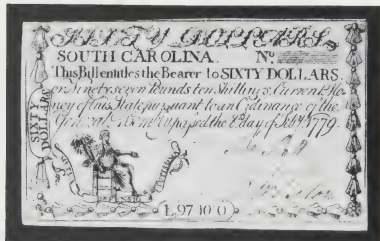 SIXTY DOLLARS
SOUTH CAROLINA. No.
This Bill entitles the Bearer to SIXTY DOLLARS.
or Ninety seven Pounds ten Shillings Current Mo
ney of this State pursuant to an Ordinance of the
General Assembly passed the 8th day of Feby. 1779.
SIXTY
DOLLARS
L 97 10 0